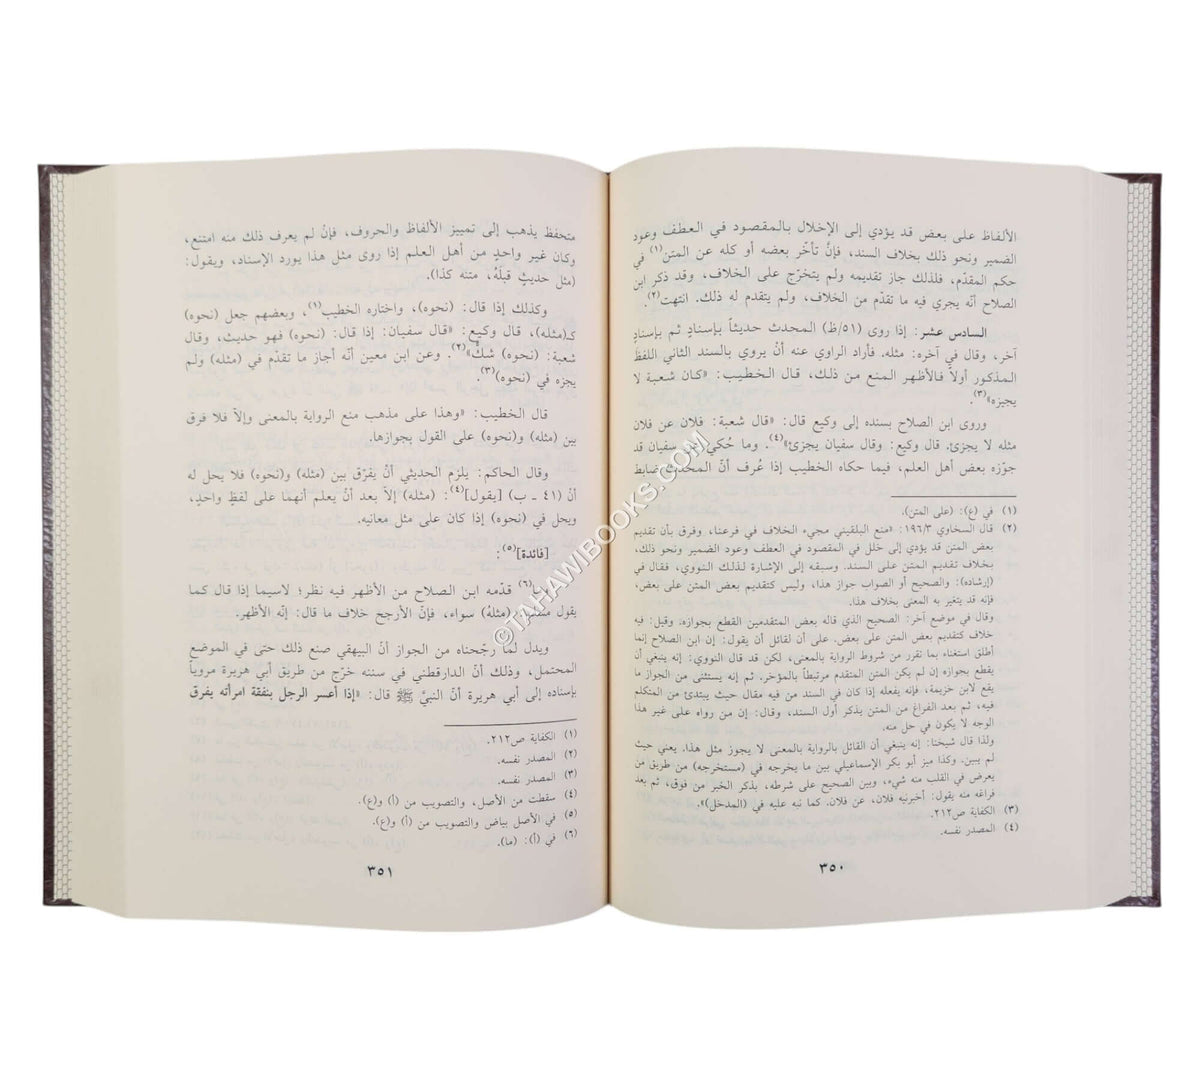 الألفاظ على بعض قد يؤدي إلى الإخلال بالمقصود في العطف وعود
الضمير ونحو ذلك بخلاف السند، فإنْ تأخّر بعضه أو كله عن المتن(١) في
حكم المقدّم، فلذلك جاز تقديمه ولم يتخرّج على الخلاف، وقد ذكر ابن
الصلاح أنّه يجري فيه ما تقدّم من الخلاف، ولم يتقدم له ذلك. انتهت(٢).
السادس عشر: إذا روى (٥١/ظ) المحدث حديثاً بإسنادٍ ثم بإسنادٍ
آخر، وقال في آخره: مثله. فأراد الراوي عنه أنْ يروي بالسند الثاني اللفظ
المذكور أولاً فالأظهر المنع من ذلك، قال الخطيب: «كان شعبة لا
يجيزه»(٣).
وروى ابن الصلاح بسنده إلى وكيع قال: «قال شعبة: فلان عن فلان
مثله لا يجزئ. قال وكيع: وقال سفيان يجزئ»(٤). وما حُكي عن سفيان قد
جوّزه بعض أهل العلم، فيما حكاه الخطيب إذا عُرف أنّ المحدث ضابط
(١) في (ع): (على المتن).
(٢) قال السخاوي ١٩٦/٣: «منع البلقيني مجيء الخلاف في فرعنا، وفرق بأن تقديم
بعض المتن قد يؤدي إلى خلل في المقصود في العطف وعود الضمير ونحو ذلك،
بخلاف تقديم المتن على السند. وسبقه إلى الإشارة لذلك النووي، فقال في
(إرشاده): والصحيح أو الصواب جواز هذا، وليس كتقديم بعض المتن على بعض،
فإنه قد يتغير به المعنى بخلاف هذا.
وقال في موضع آخر: الصحيح الذي قاله بعض المتقدمين القطع بجوازه، وقيل: فيه
خلاف كتقديم بعض المتن على بعض. على أن لقائل أن يقول: إن ابن الصلاح إنما
أطلق استغناء بما تقرر من شروط الرواية بالمعنى، لكن قد قال النووي: إنه ينبغي أن
يقطع بجوازه إن لم يكن المتن المتقدم مرتبطاً بالمؤخر. ثم إنه يستثنى من الجواز ما
يقع لابن خزيمة، فإنه يفعله إذا كان في السند من فيه مقال حيث يبتدئ من المتكلم
فيه، ثم بعد الفراغ من المتن يذكر أول السند، وقال: إن من رواه على غير هذا
الوجه لا يكون في حل منه.
ولذا قال شيخنا: إنه ينبغي أن القائل بالرواية بالمعنى لا يجوز مثل هذا. يعني حيث
لم يبين. وكذا ميز أبو بكر الإسماعيلي بين ما يخرجه في (مستخرجه) من طريق من
يعرض في القلب منه شيء، وبين الصحيح على شرطه، بذكر الخبر من فوق، ثم بعد
فراغه منه يقول: أخبرنيه فلان، عن فلان. كما نبه عليه في (المدخل)».
(٣) الكفاية ص٢١٢.
(٤) المصدر نفسه.
٣٥٠
متحفظ يذهب إلى تمييز الألفاظ والحروف، فإنْ لم يعرف ذلك منه امتنع،
وكان غير واحدٍ من أهل العلم إذا روى مثل هذا يورد الإسناد، ويقول:
(مثل حديثٍ قبلَهُ، متنه كذا).
وكذلك إذا قال: (نحوه)، واختاره الخطيب(١)، وبعضهم جعل (نحوه)
كـ(مثله)، قال وكيع: «قال سفيان: إذا قال: (نحوه) فهو حديث، وقال
شعبة: (نحوه) شكٌّ»(٢). وعن ابن معين أنّه أجاز ما تقدّم في (مثله) ولم
يجزه في (نحوه)(٣).
قال الخطيب: «وهذا على مذهب منع الرواية بالمعنى وإلّا فلا فرق
بين (مثله) و(نحوه) على القول بجوازها.
وقال الحاكم: يلزم الحديثي أنْ يفرّق بين (مثله) و(نحوه) فلا يحل له
أنْ (٤١ - ب) [يقول](٤): (مثله) إلّا بعد أنْ يعلم أنهما على لفظٍ واحدٍ،
ويحل في (نحوه) إذا كان على مثل معانيه.
[فائدة](٥):
(٦) قدّمه ابن الصلاح من الأظهر فيه نظر؛ لاسيما إذا قال كما
يقول (مثلهُ) سواء، فإنّ الأرجح خلاف ما قال: إنّه الأظهر.
ويدل لما رجّحناه من الجواز أنّ البيهقي صنع ذلك حتى في الموضع
المحتمل، وذلك أنّ الدارقطني في سننه خرّج من طريق أبي هريرة مروياً
بإسناده إلى أبي هريرة أنّ النبيَّ ﷺ قال: «إذا أعسر الرجل بنفقة امرأته يفرق
(١) الكفاية ص٢١٢.
(٢) المصدر نفسه.
(٣) المصدر نفسه.
(٤) سقطت من الأصل، والتصويب من (أ) و(ع).
(٥) في الأصل بياض والتصويب من (أ) و(ع).
(٦) في (أ): (ما).
٣٥١
©TAHAWIBOOKS.COM